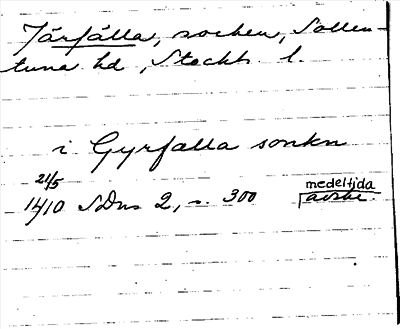 Järfälla, socken, Sollen-
tuna hd, Stockh. l.
i Gyrfalla sonkn
21/5
1410 SDns 2, s. 300
medeltida
avskr.